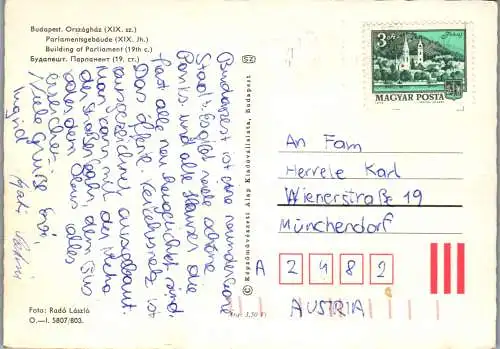 Budapest. Országház (XIX. sz.)
Parlamentsgebäude (XIX. Jh.)
Building of Parliament (19th c.)
Будапешт. Парламент (19. ст.)
Budapest ist eine wunderbare
Stadt. Es gibt viele schöne
Parks und alle Häuser die
fast alle neu hergerichtet sind.
Das öffentl. Verkehrsnetz ist
ausgezeichnet ausgebaut.
Man kann mit der Metro
der Straßenbahn, dem Bus
oder dem alles
erreichen.
Viele Grüße Eure
Ingrid
Foto: Radó László
O.—I. 5807/803.
© Képzőművészeti Alap Kiadóvállalata, Budapest
SZ
Ára: 3,50 Ft
3 Ft
MAGYAR POSTA
An Fam
Herrele Karl
Wienerstraße 19
Münchendorf
A 2482
AUSTRIA